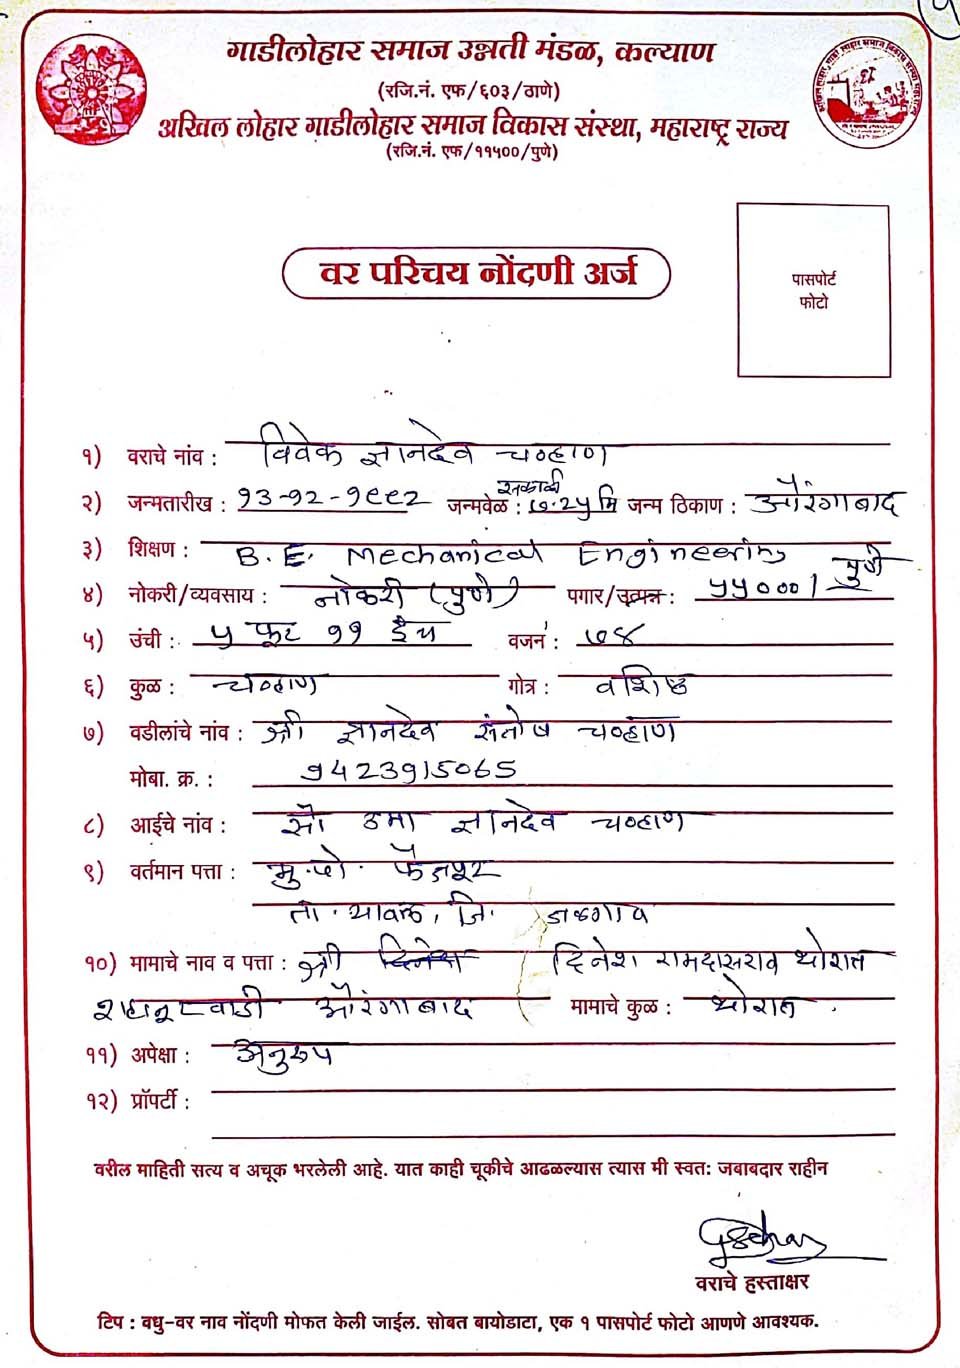 गाडीलोहार समाज उन्नती मंडळ, कल्याण
(रजि.नं. एफ/६०३/ठाणे)
अखिल लोहार गाडीलोहार समाज विकास संस्था, महाराष्ट्र राज्य
(रजि.नं. एफ/११५००/पुणे)
पासपोर्ट
फोटो
वर परिचय नोंदणी अर्ज
१) वराचे नांव : विवेक ज्ञानदेव चव्हाण
२) जन्मतारीख : १३-१२-१९९२ जन्मवेळ : सकाळी ७.२५ मि जन्म ठिकाण : औरंगाबाद
३) शिक्षण : B.E. Mechanical Engineering
४) नोकरी/व्यवसाय : नोकरी (पुणे) पगार/उत्पन्न : ५५०००/ पुणे
५) उंची : ५ फूट ११ इंच वजन : ७४
६) कुळ : चव्हाण गोत्र : वशिष्ठ
७) वडीलांचे नांव : श्री ज्ञानदेव संतोष चव्हाण
मोबा. क्र. : 9423915065
८) आईचे नांव : सौ उमा ज्ञानदेव चव्हाण
९) वर्तमान पत्ता : मु.पो. फैजपूर
ता. यावल, जि. जळगाव
१०) मामाचे नाव व पत्ता : श्री दिनेश दिनेश रामदासराव थोरात
शहानूरवाडी औरंगाबाद मामाचे कुळ : थोरात .
११) अपेक्षा : अनुरूप
१२) प्रॉपर्टी :
वरील माहिती सत्य व अचूक भरलेली आहे. यात काही चूकीचे आढळल्यास त्यास मी स्वत: जबाबदार राहीन
वराचे हस्ताक्षर
टिप : वधु-वर नाव नोंदणी मोफत केली जाईल. सोबत बायोडाटा, एक १ पासपोर्ट फोटो आणणे आवश्यक.